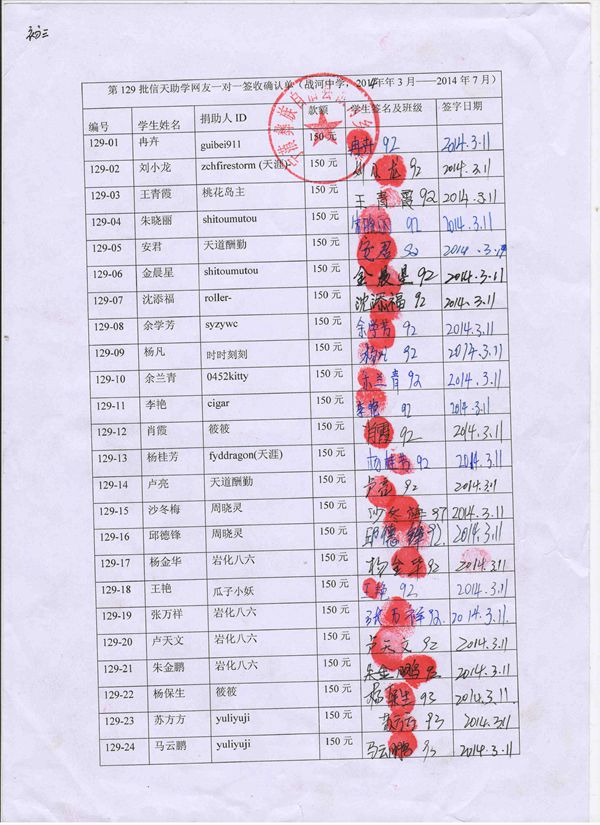 初三
第 129 批信天助学网友一对一签收确认单（战河中学，2014年 3 月——2014 年 7 月）
编号 学生姓名 捐助人 ID 款额 学生签名及班级 签字日期
129-01 冉卉 guibei911 150 元 冉卉 92 2014.3.11
129-02 刘小龙 zchfirestorm (天涯) 150 元 刘小龙 92 2014.3.11
129-03 王青霞 桃花岛主 150 元 王青霞 92 2014.3.11
129-04 朱晓丽 shitoumutou 150 元 92 2014.3.11
129-05 安君 天道酬勤 150 元 安君 92 2014.3.11
129-06 金晨星 shitoumutou 150 元 金晨星 92 2014.3.11
129-07 沈添福 roller- 150 元 沈添福 92 2014.3.11
129-08 余学芳 syzywc 150 元 余学芳 92 2014.3.11
129-09 杨凡 时时刻刻 150 元 杨凡 92 2014.3.11
129-10 余兰青 0452kitty 150 元 余兰青 92 2014.3.11
129-11 李艳 cigar 150 元 李艳 92 2014.3.11
129-12 肖霞 筱筱 150 元 肖霞 92 2014.3.11
129-13 杨桂芳 fyddragon(天涯) 150 元 杨桂芳 92 2014.3.11
129-14 卢亮 天道酬勤 150 元 卢亮 92 2014.3.1
129-15 沙冬梅 周晓灵 150 元 沙冬梅 97 2014.3.11
129-16 邱德锋 周晓灵 150 元 邱德锋 92. 2014.3.11
129-17 杨金华 岩化八六 150 元 杨金华 92 2014.3.11
129-18 王艳 瓜子小妖 150 元 王艳 92 2014.3.11
129-19 张万祥 岩化八六 150 元 张万祥 92. 2014.3.11.
129-20 卢天文 岩化八六 150 元 卢天文 92 2014.3.11
129-21 朱金鹏 岩化八六 150 元 朱金鹏 92 2014.3.11
129-22 杨保生 筱筱 150 元 杨保生 93 2013.3.11.
129-23 苏方方 yuliyuji 150 元 苏方方 93 2014.3.11
129-24 马云鹏 yuliyuji 150 元 马云鹏 93 2014.3.11